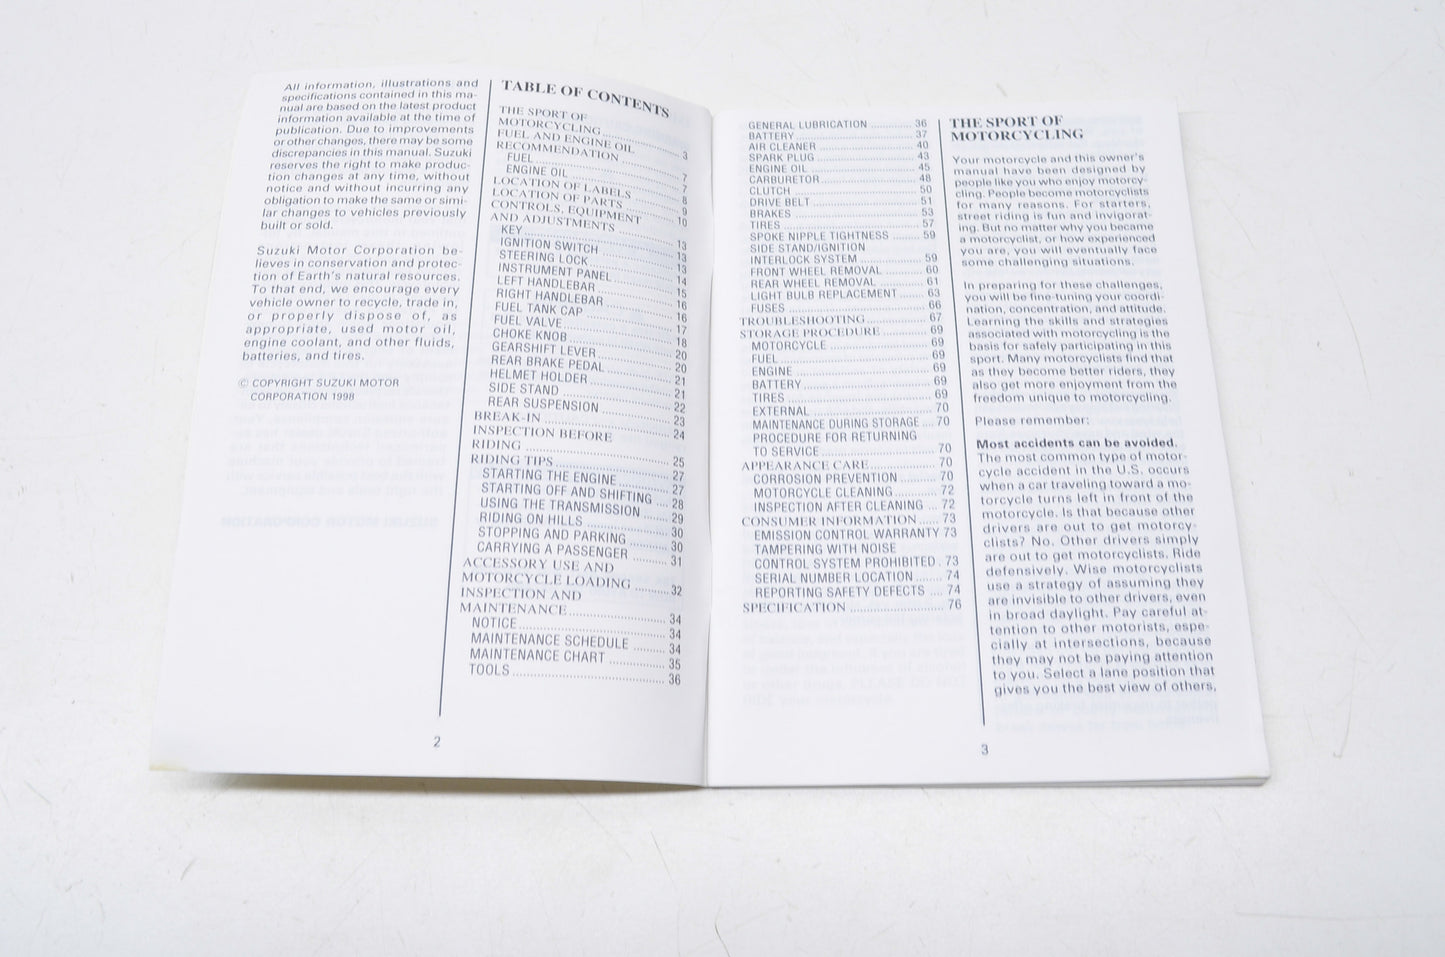 All information, illustrations and
specifications contained in this ma-
nual are based on the latest product
information available at the time of
publication. Due to improvements
or other changes, there may be some
discrepancies in this manual. Suzuki
reserves the right to make produc-
tion changes at any time, without
notice and without incurring any
obligation to make the same or simi-
lar changes to vehicles previously
built or sold.
Suzuki Motor Corporation be-
lieves in conservation and protec-
tion of Earth's natural resources.
To that end, we encourage every
vehicle owner to recycle, trade in,
or properly dispose of, as
appropriate, used motor oil,
engine coolant, and other fluids,
batteries, and tires.
© COPYRIGHT SUZUKI MOTOR
CORPORATION 1998
TABLE OF CONTENTS
THE SPORT OF
MOTORCYCLING .................... 3
FUEL AND ENGINE OIL
RECOMMENDATION ................ 7
FUEL .................... 7
ENGINE OIL .................... 8
LOCATION OF LABELS .......... 9
LOCATION OF PARTS ............ 10
CONTROLS, EQUIPMENT
AND ADJUSTMENTS .............. 13
KEY .................... 13
IGNITION SWITCH .............. 13
STEERING LOCK ................ 14
INSTRUMENT PANEL ............ 15
LEFT HANDLEBAR .............. 16
RIGHT HANDLEBAR ............ 16
FUEL TANK CAP ................ 17
FUEL VALVE .................... 18
CHOKE KNOB .................... 20
GEARSHIFT LEVER .............. 20
REAR BRAKE PEDAL ............ 21
HELMET HOLDER ................ 21
SIDE STAND .................... 22
REAR SUSPENSION .............. 23
BREAK-IN .................... 24
INSPECTION BEFORE
RIDING .................... 25
RIDING TIPS .................... 27
STARTING THE ENGINE .......... 27
STARTING OFF AND SHIFTING .... 28
USING THE TRANSMISSION ...... 29
RIDING ON HILLS .............. 30
STOPPING AND PARKING ........ 30
CARRYING A PASSENGER ........ 31
ACCESSORY USE AND
MOTORCYCLE LOADING .......... 32
INSPECTION AND
MAINTENANCE .................... 34
NOTICE .................... 34
MAINTENANCE SCHEDULE ........ 34
MAINTENANCE CHART ............ 35
TOOLS .................... 36
2
GENERAL LUBRICATION ............ 36
BATTERY .................... 37
AIR CLEANER .................... 40
SPARK PLUG .................... 43
ENGINE OIL .................... 45
CARBURETOR .................... 48
CLUTCH .................... 50
DRIVE BELT .................... 51
BRAKES .................... 53
TIRES .................... 57
SPOKE NIPPLE TIGHTNESS ........ 59
SIDE STAND/IGNITION
INTERLOCK SYSTEM .............. 59
FRONT WHEEL REMOVAL .......... 60
REAR WHEEL REMOVAL ............ 61
LIGHT BULB REPLACEMENT ....... 63
FUSES .................... 66
TROUBLESHOOTING .............. 67
STORAGE PROCEDURE ............ 69
MOTORCYCLE .................... 69
FUEL .................... 69
ENGINE .................... 69
BATTERY .................... 69
TIRES .................... 69
EXTERNAL .................... 70
MAINTENANCE DURING STORAGE .... 70
PROCEDURE FOR RETURNING
TO SERVICE .................... 70
APPEARANCE CARE .............. 70
CORROSION PREVENTION .......... 70
MOTORCYCLE CLEANING .......... 72
INSPECTION AFTER CLEANING ... 72
CONSUMER INFORMATION ...... 73
EMISSION CONTROL WARRANTY 73
TAMPERING WITH NOISE
CONTROL SYSTEM PROHIBITED . 73
SERIAL NUMBER LOCATION ........ 74
REPORTING SAFETY DEFECTS .... 74
SPECIFICATION .................... 76
THE SPORT OF
MOTORCYCLING
Your motorcycle and this owner's
manual have been designed by
people like you who enjoy motorcy-
cling. People become motorcyclists
for many reasons. For starters,
street riding is fun and invigorat-
ing. But no matter why you became
a motorcyclist, or how experienced
you are, you will eventually face
some challenging situations.
In preparing for these challenges,
you will be fine-tuning your coordi-
nation, concentration, and attitude.
Learning the skills and strategies
associated with motorcycling is the
basis for safely participating in this
sport. Many motorcyclists find that
as they become better riders, they
also get more enjoyment from the
freedom unique to motorcycling.
Please remember:
Most accidents can be avoided.
The most common type of motor-
cycle accident in the U.S. occurs
when a car traveling toward a mo-
torcycle turns left in front of the
motorcycle. Is that because other
drivers are out to get motorcy-
clists? No. Other drivers simply
are out to get motorcyclists. Ride
defensively. Wise motorcyclists
use a strategy of assuming they
are invisible to other drivers, even
in broad daylight. Pay careful at-
tention to other motorists, espe-
cially at intersections, because
they may not be paying attention
to you. Select a lane position that
gives you the best view of others,
3